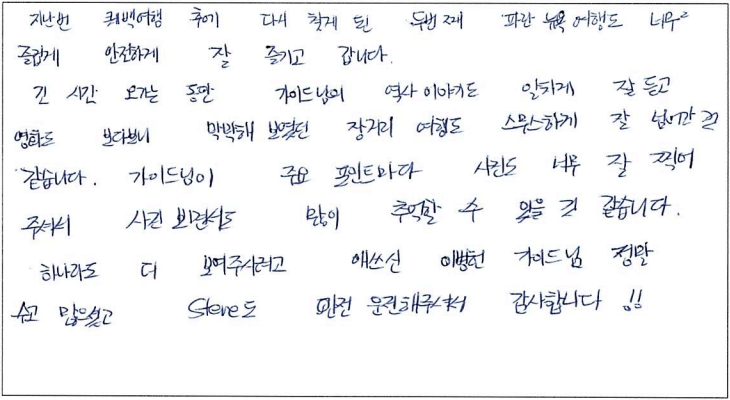 지난번 퀘백여행 후에 다시 찾게 된 두번째 파란 뉴욕여행도 너무²
즐겁게 안전하게 잘 즐기고 갑니다.
긴 시간 오가는 동안 가이드님의 역사 이야기도 알차게 잘 듣고
영화도 보다보니 막막해 보였던 장거리 여행도 스무스하게 잘 넘어간 것
같습니다. 가이드님이 주요 포인트마다 사진도 너무 잘 찍어
주셔서 사진 보면서도 많이 추억할 수 있을 것 같습니다.
하나라도 더 보여주시려고 애쓰신 이병헌 가이드님 정말
수고 많으셨고 Steve도 안전 운전해주셔서 감사합니다 !!